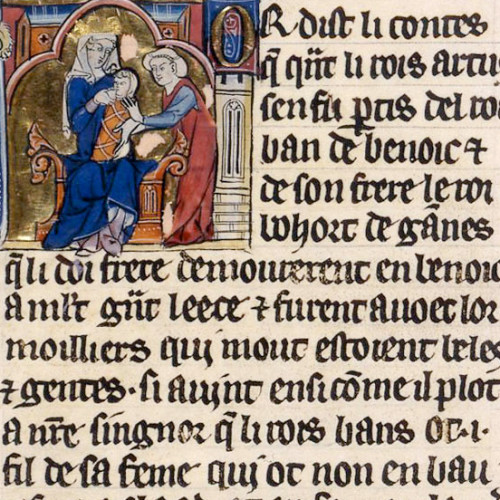 OR dist li contes
q̃ q̃nt li rois artu
sen fu ꝑtis del roi
ban de benoic ⁊
de son frere le roi
bohort de gãnes
q̃ li doi frere demourerent en benoic
a ml't gñt leece ⁊ furent auoec lor
moilliers qui mout estoient beles
⁊ gentes · si auint ensi cõme il plot
a nr̃e singnor q̃ li rois bans ot · i ·
fil de sa feme qui ot non en bau